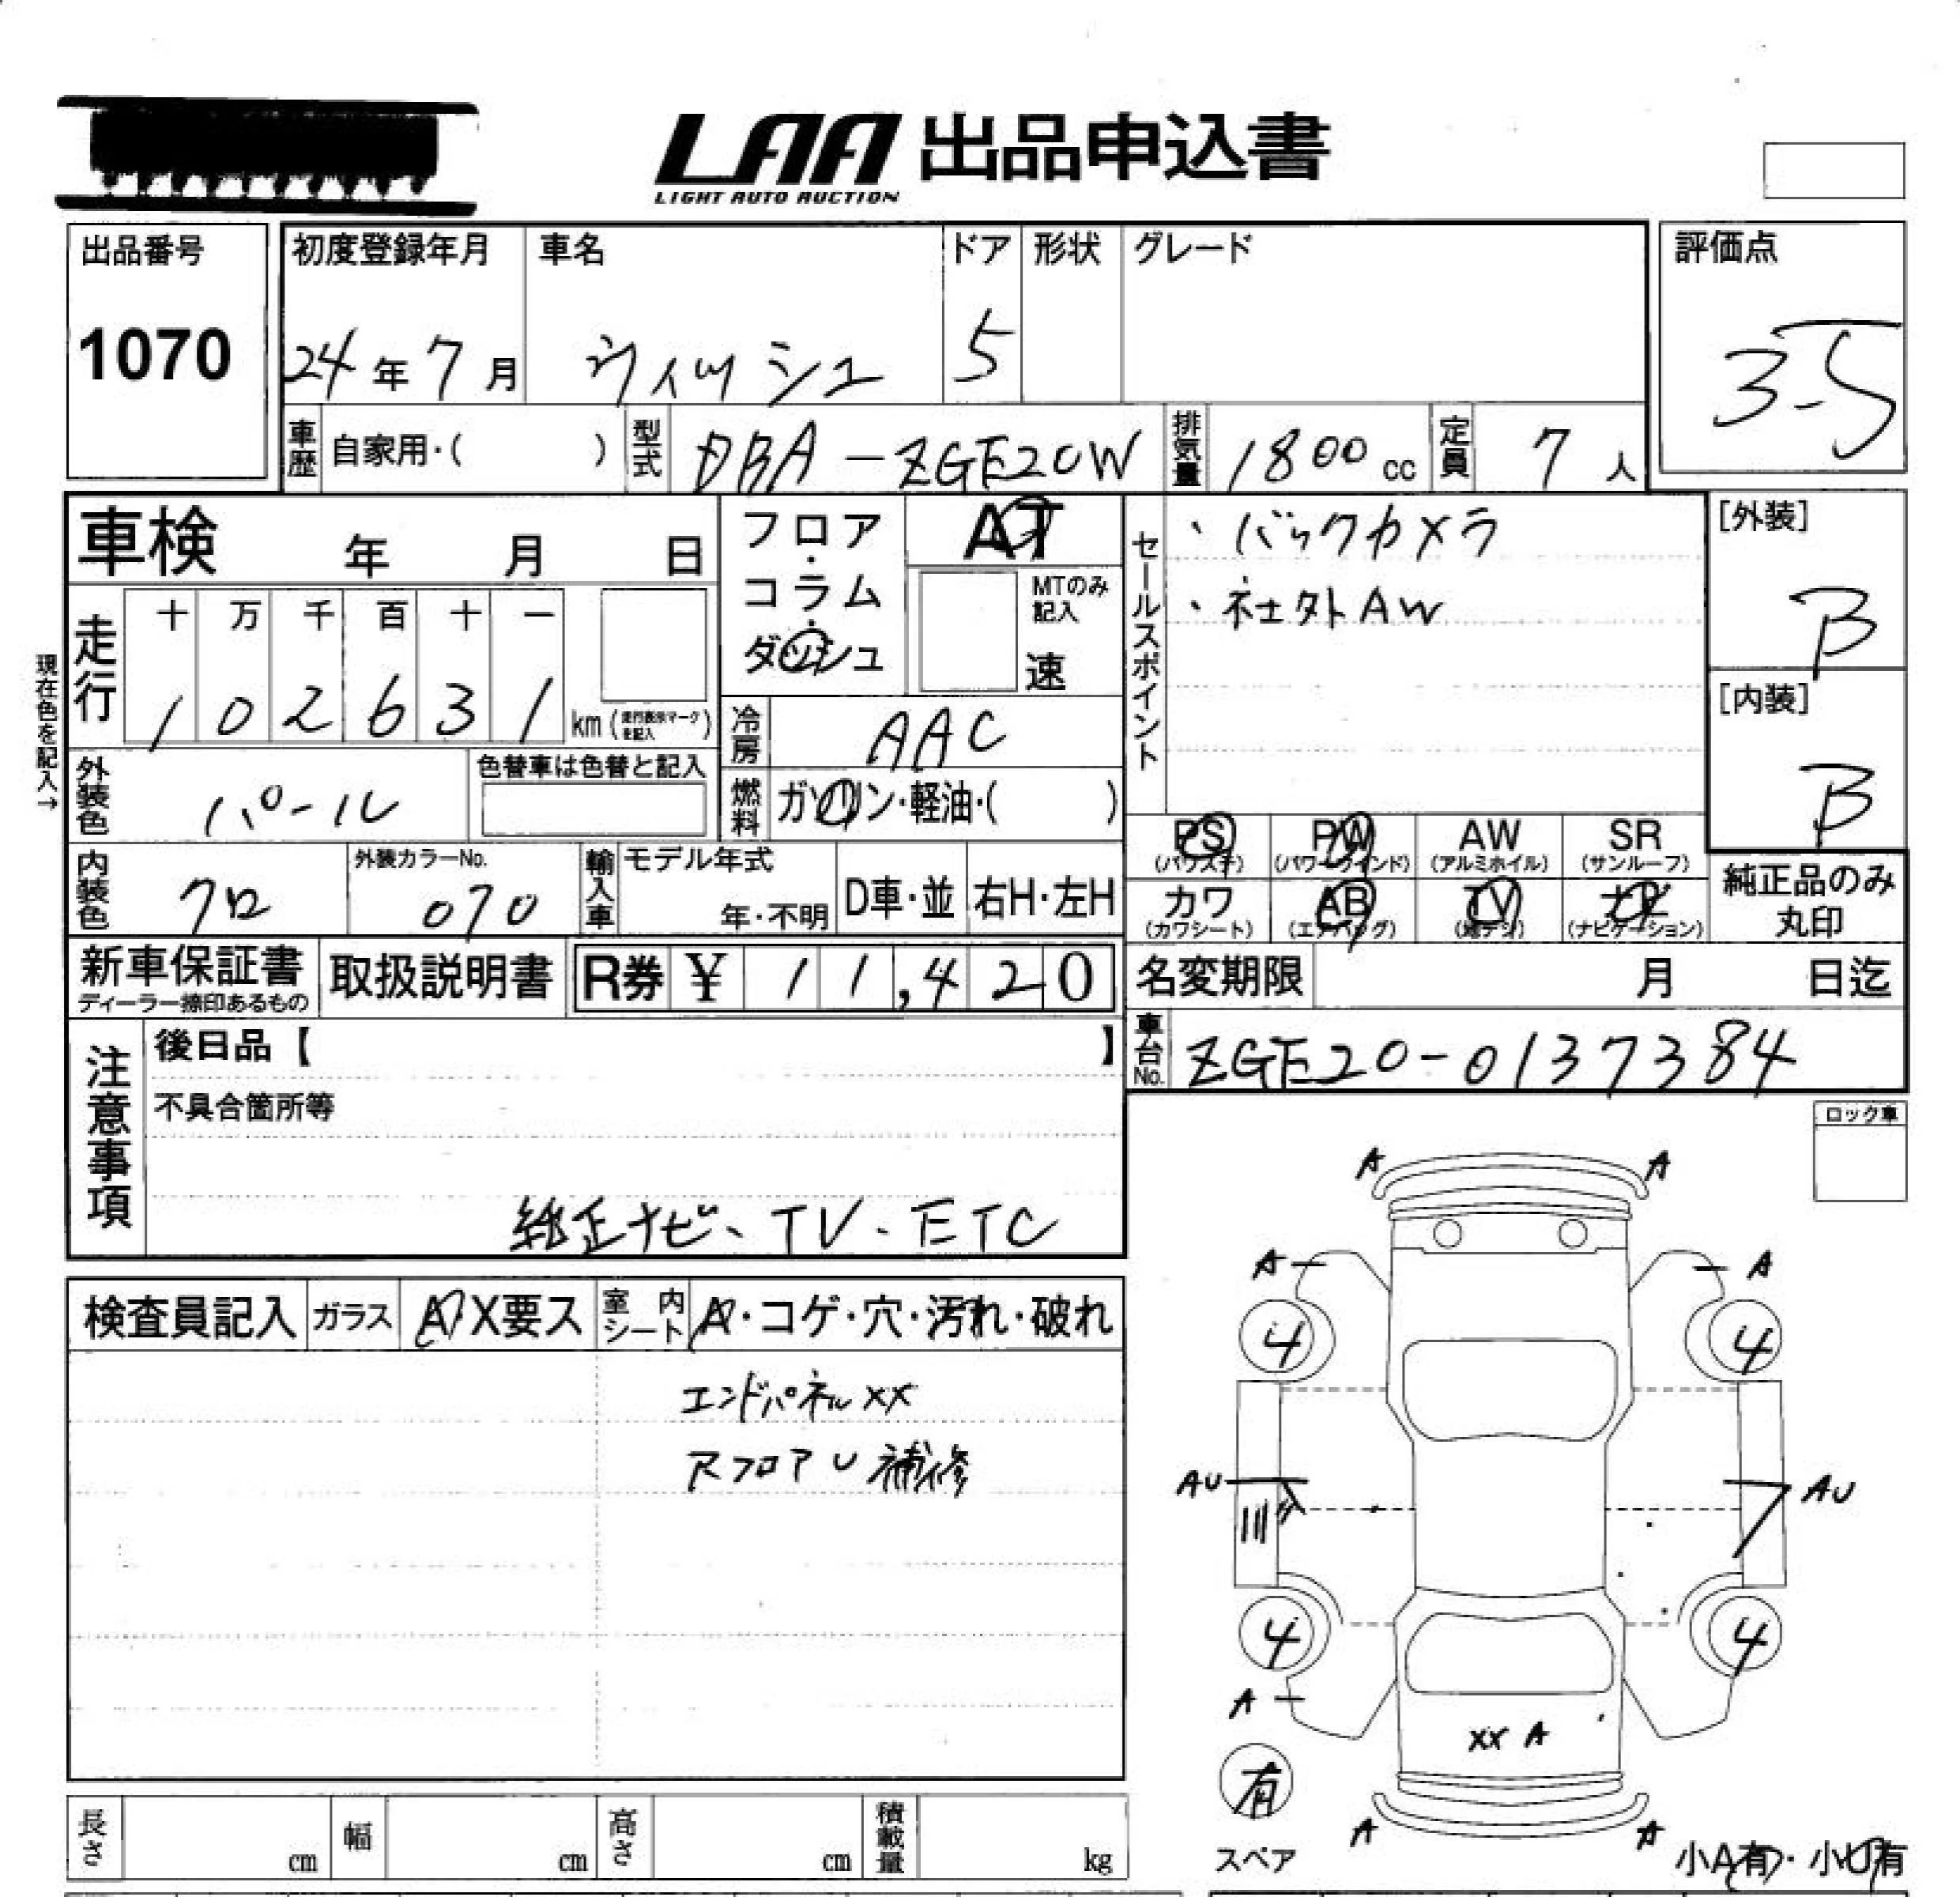 LAA 出品申込書
LIGHT AUTO AUCTION
出品番号 初度登録年月 車名 ドア 形状 グレード 評価点
1070 24年 7月 ウィッシュ 5 3.5
車歴 自家用・( ) 型式 DBA-ZGE20W 排気量 1800 cc 定員 7 人
車検 年 月 日
フロア・コラム・ダッシュ
AT
MTのみ記入
速
セールスポイント
・バックカメラ
・社外AW
[外装]
B
[内装]
B
現在色を記入→
走行 十 万 千 百 十 一
1 0 2 6 3 1 km (走行表示マークを記入)
冷房 AAC
外装色 パール 色替車は色替と記入
燃料 ガソリン・軽油・( )
PS (パワステ) PW (パワーウインド) AW (アルミホイル) SR (サンルーフ)
カワ (カワシート) AB (エアバッグ) TV (地デジ) ナビ (ナビゲーション)
純正品のみ丸印
内装色 クロ 外装カラーNo. 070 輸入車 モデル年式 年・不明 D車・並 右H・左H
新車保証書 ディーラー捺印あるもの 取扱説明書 R券 ¥ 11,420
名変期限 月 日迄
車台No. ZGE20-0137384
注意事項
後日品【 】
不具合箇所等
純正ナビ、TV、ETC
ロック車
検査員記入 ガラス A/X要ス 室内シート A・コゲ・穴・汚れ・破れ
エンドパネルXX
Rフロア U 補修
A A
A A
4 4
AU AU
4 4
A
XX A
有
スペア
A A
小A有・小U有
長さ cm 幅 cm 高さ cm 積載量 kg